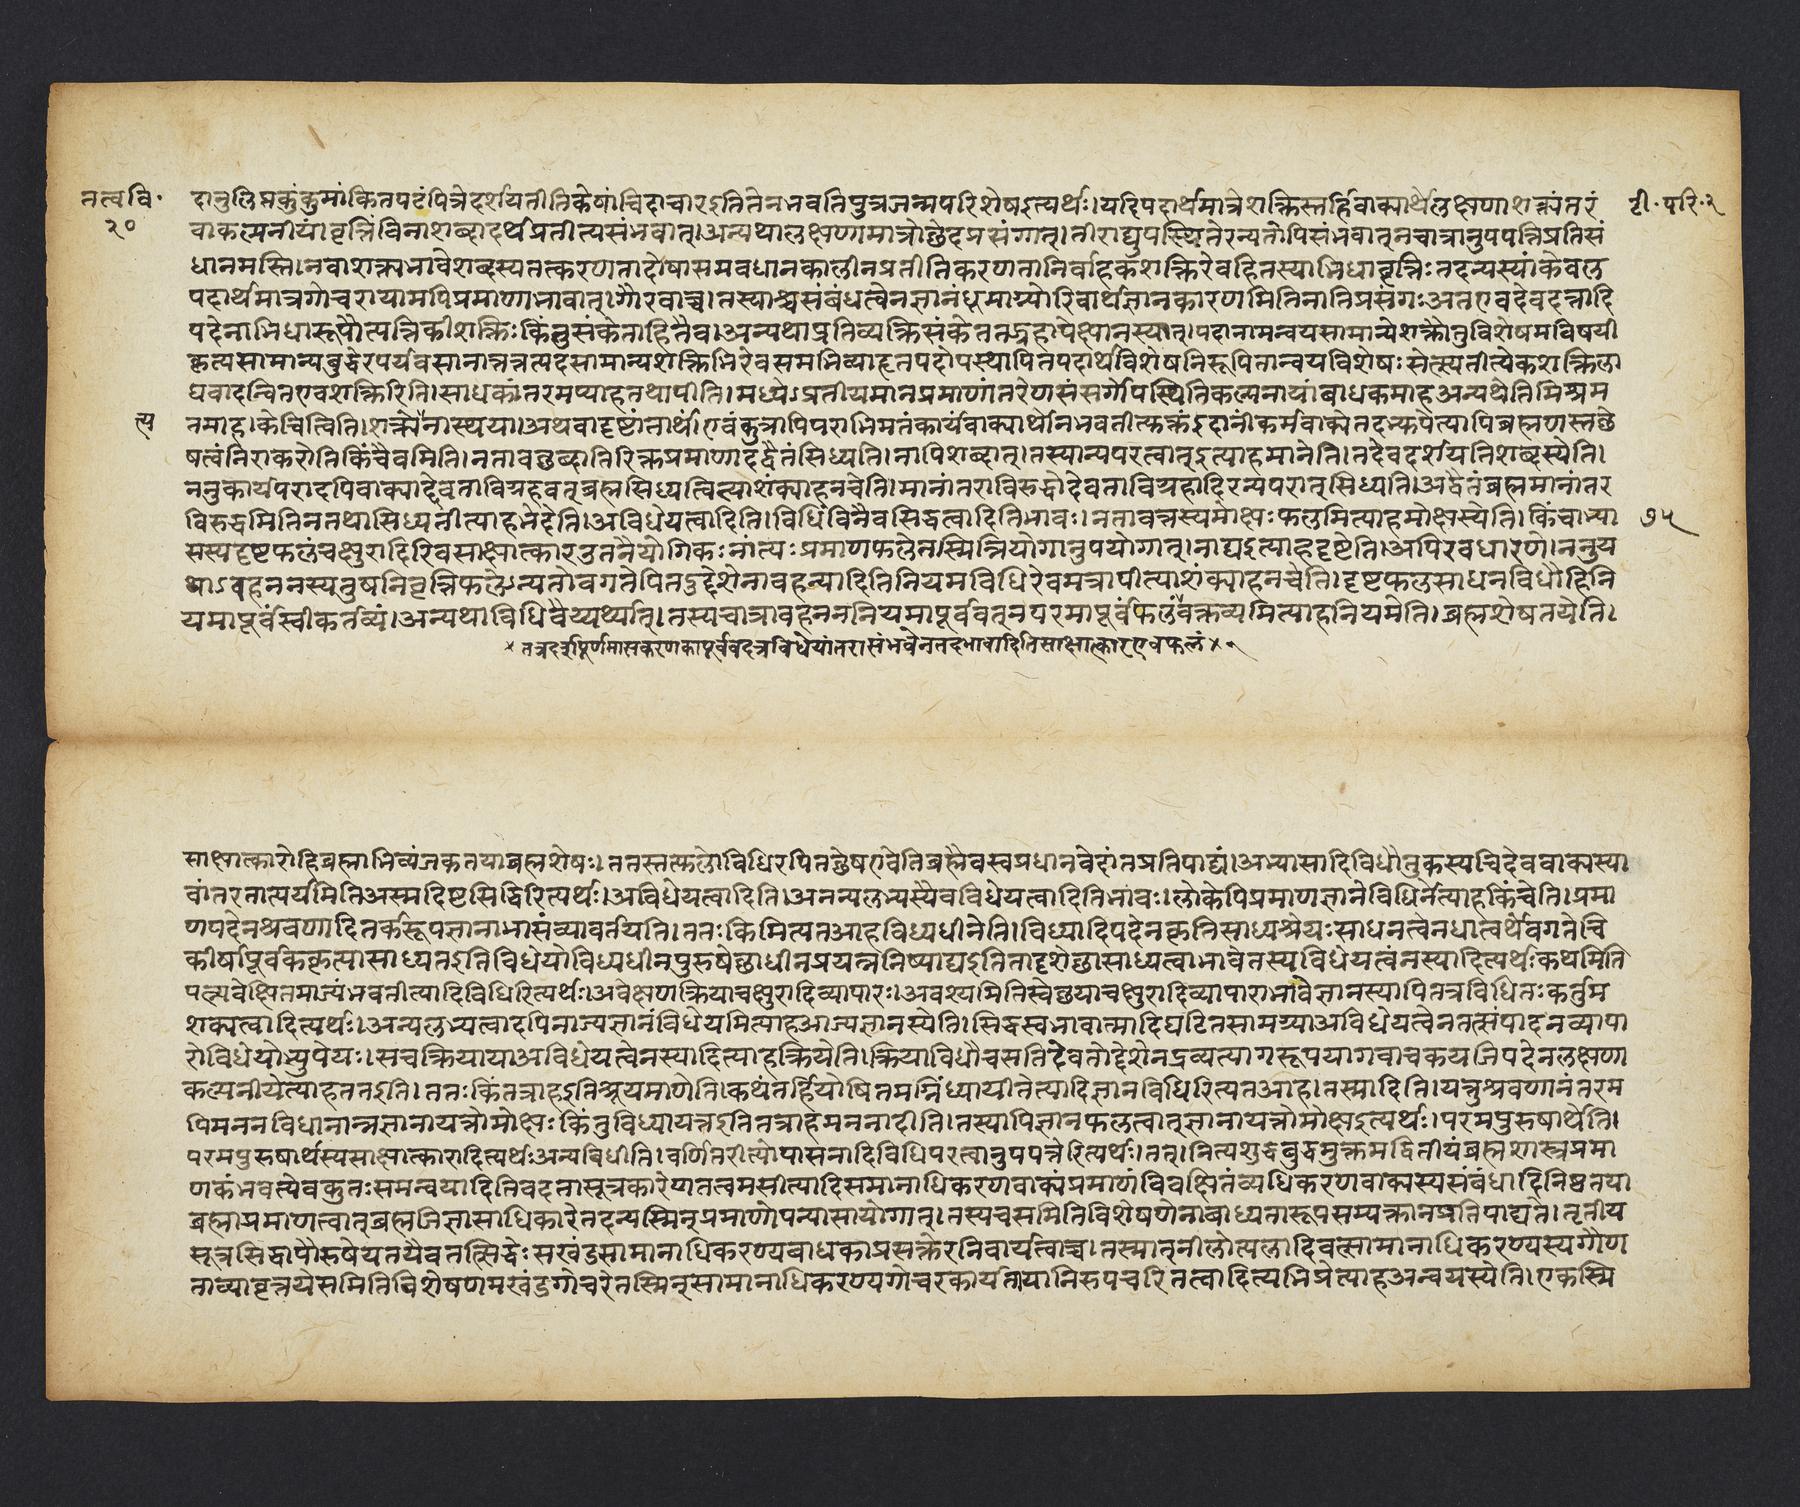 तत्ववि· दानुलिप्तकुंकुमांकितपटंपित्रेदर्शयतीतिकेषांचिदाचारइतितेनभवतिपुत्रजन्मपरिशेषइत्यर्थः।यदिपदार्थमात्रेशक्तिस्तर्हिवाक्यार्थेलक्षणाशक्त्यंतरं टी·परि·२
२० वाकल्पनीयं।वृत्तिंविनाशब्दादर्थप्रतीत्यसंभवात्।अन्यथालक्षणामात्रोछेदप्रसंगात्।तीराद्युपस्थितेरन्यतोपिसंभवात्नचात्रानुपपत्तिप्रतिसं
धानमस्ति।नवाशक्त्यभावेशब्दस्यतत्करणतादोषासमवधानकालीनप्रतीतिकरणतानिर्वाहकशक्तिरेवहितस्याभिधावृत्तिःतदन्यस्यांकेवल
पदार्थमात्रगोचरायामपिप्रमाणाभावात्।गौरवाच्च।तस्याश्चसंबंधत्वेनज्ञानंधूमाग्न्योरिवार्थज्ञानकारणमितिनातिप्रसंगःअतएवदेवदत्तादि
पदेनाभिधारूपौत्पत्तिकीशक्तिःकिंतुसंकेताहितैव।अन्यथाप्रतिव्यक्तिसंकेततद्ग्रहापेक्षानस्यात्।पदानामन्वयसामान्येशक्तौतुविशेषमविषयी
कृत्यसामान्यबुद्धेरपर्यवसानात्तत्तत्पदसामान्यशक्तिभिरेवसमभिव्याहृतपदोपस्थापितपदार्थविशेषनिरूपितान्वयविशेषःसेत्स्यतीत्येकशक्तिला
घवादन्वितएवशक्तिरिति।साधकांतरमप्याहतथापीति।मध्येऽप्रतीयमानप्रमाणांतरेणसंसर्गोपस्थितिकल्पनायांबाधकमाहअन्यथेतिमिश्रम
त्य तमाह।केचित्विति।शक्तौनास्थया।अथवादृष्टांतार्थं।एवंकुत्रापिपराभिमतंकार्यंवाक्यार्थोनभवतीत्युक्तंइदानींकर्मवाक्येतदभ्युपेत्यापिब्रह्मणस्तछे
षत्वंनिराकरोतिकिंचैवमिति।नतावच्छब्दातिरिक्तप्रमाणादद्वैतंसिध्यति।नापिशब्दात्।तस्यान्यपरत्वात्इत्याहमानेति।तदेवदर्शयतिशब्दस्येति।
ननुकार्यपरादपिवाक्याद्देवताविग्रहवत्ब्रह्मसिध्यत्वित्याशंक्याहनचेति।मानांतराविरुद्धोदेवताविग्रहादिरन्यपरात्सिध्यति।अद्वैतंब्रह्ममानांतर
विरुद्धमितिनतथासिध्यतीत्याहभेदेति।अविधेयत्वादिति।विधिंविनैवसिद्धत्वादितिभावः।नतावत्तस्यमोक्षःफलमित्याहमोक्षस्येति।किंचाभ्या ७५
सस्यदृष्टफलंचक्षुरादिरिवसाक्षात्कारउतनैयोगिकःनांत्यःप्रमाणफलेतस्मिन्नियोगानुपयोगात्।नाद्यइत्याहदृष्टेति।अपिरवधारणे।ननुय
थाऽवहननस्यतुषनिवृत्तिफलेऽन्यतोवगतेपितदुद्देशेनावहन्यादितिनियमविधिरेवमत्रापीत्याशंक्याहनचेति।दृष्टफलसाधनविधौहिनि
यमापूर्वंस्वीकर्तव्यं।अन्यथाविधिवैय्यर्थ्यात्।तस्यचात्रावहनननियमापूर्ववत्नपरमापूर्वंफलंवक्तव्यमित्याहनियमेति।ब्रह्मशेषतयेति।
×तत्रदर्शपूर्णमासकरणकापूर्ववदत्रविधेयांतरासंभवेनतदभावादितिसाक्षात्कारएवफलं×
साक्षात्कारोहिब्रह्माभिव्यंजकतयाब्रह्मशेषः।ततस्तत्फलोविधिरपितछेषएवेतिब्रह्मैवस्वप्रधानवेदांतप्रतिपाद्यं।अभ्यासादिविधौतुकस्यचिदेववाक्यस्या
वांतरतात्पर्यमितिअस्मदिष्टसिद्धिरित्यर्थः।अविधेयत्वादिति।अनन्यलभ्यस्यैवविधेयत्वादितिभावः।लोकेपिप्रमाणज्ञानेविधिर्नेत्याहकिंचेति।प्रमा
णपदेनश्रवणादितर्करूपज्ञानाभासंव्यावर्तयति।ततःकिमित्यतआहविध्यधीनेति।विध्यादिपदेनकृतिसाध्यश्रेयःसाधनत्वेनधात्वर्थेवगतेचि
कीर्षापूर्वककृत्यासाध्यतइतिविधेयोविध्यधीनपुरुषेछाधीनप्रयत्ननिष्पाद्यइतितादृशेछासाध्यत्वाभावेतस्यविधेयत्वंनस्यादित्यर्थःकथमिति
पत्न्यवेक्षितमाज्यंभवतीत्यादिविधिरित्यर्थः।अवेक्षणक्रियाचक्षुरादिव्यापारः।अवश्यमितिस्वेछयाचक्षुरादिव्यापाराभावेज्ञानस्यापितत्रविधितःकर्तुम
शक्यत्वादित्यर्थः।अन्यलभ्यत्वादपिनाज्यज्ञानंविधेयमित्याहआज्यज्ञानस्येति।सिद्धस्वभावात्मादिघटितसामग्र्याअविधेयत्वेनतत्संपादनव्यापा
रोविधेयोभ्युपेयः।सचक्रियायाअविधेयत्वेनस्यादित्याहक्रियेति।क्रियाविधौचसतिदेवतोद्देशेनद्रव्यत्यागरूपयागवाचकयजिपदेनलक्षणा
कल्पनीयेत्याहततइति।ततःकिंतत्राहइतिश्रूयमाणेति।कथंतर्हियोषितमग्निंध्यायीतेत्यादिज्ञानविधिरित्यतआह।तस्मादिति।यत्तुश्रवणानंतरम
पिमननविधानान्नज्ञानायत्तोमोक्षःकिंतुविध्यायत्तइतितत्राहमननादीति।तस्यापिज्ञानफलत्वात्ज्ञानायत्तोमोक्षइत्यर्थः।परमपुरुषार्थेति।
परमपुरुषार्थस्यसाक्षात्कारादित्यर्थःअन्यविधीति।वर्णितरीत्योपासनादिविधिपरत्वानुपपत्तेरित्यर्थः।ततु।नित्यशुद्धबुद्धमुक्तमद्वितीयंब्रह्मशास्त्रप्रमा
णकंभवत्येवकुतःसमन्वयादितिवदतासूत्रकारेणतत्वमसीत्यादिसमानाधिकरणवाक्यंप्रमाणंविवक्षितंव्यधिकरणवाक्यस्यसंबंधादिनिष्ठतया
ब्रह्माप्रमाणत्वात्ब्रह्मजिज्ञासाधिकारेतदन्यस्मिन्प्रमाणोपन्यासायोगात्।तस्यचसमितिविशेषणेनाबाध्यतारूपसम्यक्त्वानप्रतिपाद्यते।तृतीय
सूत्रसिद्धापौरुषेयतयैवतत्सिद्धेःसखंडसामानाधिकरण्यबाधकाप्रसक्तेरनिवार्यत्वाच्च।तस्मात्नीलोत्पलादिवत्सामानाधिकरण्यस्यगौण
ताव्यावृत्तयेसमितिविशेषणमखंडगोचरेतस्मिन्सामानाधिकरण्यगोचरकार्यतायानिरुपचरितत्वादित्यभिप्रेत्याहअन्वयस्येति।एकस्मि